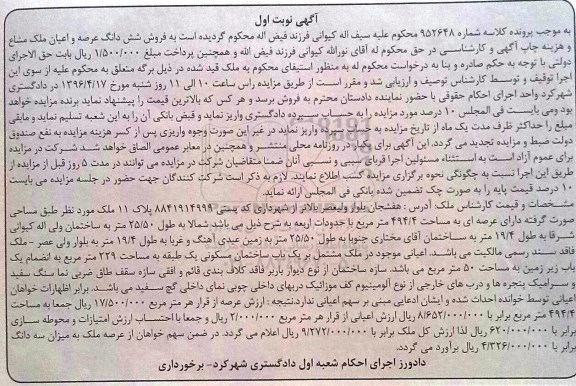 آگهی نوبت اول
به موجب پرونده کلاسه شماره ۹۵۲۶۴۸ محکوم علیه سیف اله کیوانی فرزند فیض اله محکوم گردیده است به فروش شش دانگ عرصه و اعیان ملک مشاع
و هزینه چاپ آگهی و کارشناسی در حق محکوم له آقای نورالله کیوانی فرزند فیض الله و همچنین پرداخت مبلغ ۱/۵۰۰/۰۰۰ ریال بابت حق الاجرای
دولتی با توجه به حکم صادره و بنا به درخواست محکوم له به منظور استیفای محکوم به ملک قید شده در ذیل برگه متعلق به محکوم علیه از سوی این
اجرا توقیف و توسط کارشناس توصیف و ارزیابی شد و مقرر است از طریق مزایده راس ساعت ۱۰ الی ۱۱ روز شنبه مورخ ۱۳۹۶/۴/۱۷ در دادگستری
شهرکرد واحد اجرای احکام حقوقی با حضور نماینده دادستان محترم به فروش برسد و هر کس که بالاترین قیمت را پیشنهاد نماید برنده مزایده خواهد
بود ومی بایست فی المجلس ۱۰ درصد مورد مزایده را به حساب سپرده دادگستری واریز نماید و قبض بانکی آن را به این شعبه تسلیم نماید و مابقی
مبلغ را حداکثر ظرف مدت یک ماه از تاریخ مزایده به حساب سپرده واریز نماید در غیر این صورت وجوه واریزی پس از کسر هزینه مزایده به نفع صندوق
دولت ضبط و مزایده تجدید می گردد. این آگهی برای یک بار در روزنامه محلی منتشر و همچنین در معابر عمومی الصاق خواهد شد شرکت در مزایده
برای عموم آزاد است به استثناء مسئولین اجرا قربای سببی و نسبی آنان ضمنا متقاضیان شرکت در مزایده می توانند در مدت ۵ روز قبل از مزایده از
طریق این اجرا نسبت به چگونگی نحوه برگزاری مزایده کسب اطلاع نمایند. لازم به ذکر است شرکت کنندگان جهت حضور در جلسه مزایده می بایست
۱۰ درصد قیمت پایه را به صورت چک تضمین شده بانکی فی المجلس ارائه نماید.
مشخصات و قیمت کارشناس ملک: آدرس : هفشجان بلوار ولیعصر بالاتر از شهرداری کد پستی ۸۸۴۱۹۱۴۹۹۴ پلاک ۱۱ ملک مورد نظر طبق مساحی
صورت گرفته دارای عرصه ای به مساحت ۴۹۴/۴ متر مربع با حدودات اربعه به شرح ذیل می باشد شمالا به طول ۲۵/۵۰ متر به ساختمان ولی اله کیوانی
شرقا به طول ۱۹/۴ متر به ساختمان آقای مختاری جنوبا به طول ۲۵/۵۰ متر به زمین عیدی آهنگ و غربا به طول ۱۹/۴ متر به بلوار ولی عصر - ملک
فاقد سند رسمی مالکیت می باشد. اعیانی موجود در ملک مشتمل بر یک باب ساختمان مسکونی یک طبقه به مساحت ۲۲۹ متر مربع به انضمام یک
باب زیر زمین به مساحت ۵۰ متر مربع می باشد. سازه ساختمان از نوع دیوار باربر فاقد کلاف بندی قائم و افقی سازه سقف طاق ضربی نما سنگ سفید
و سرامیک پنجره ها و درب های خارجی از نوع آلومینیوم کف موزائیک دربهای داخلی چوبی نمای داخلی گچ سفید می باشد. برابر اظهارات خواهان
اعیانی توسط خوانده احداث شده و ایشان ادعایی مبنی بر سهم اعیانی ندارد.نتیجه : ارزش عرصه از قرار هر متر مربع ۱۷/۵۰۰/۰۰۰ ریال جمعا به مساحت
۴۹۴/۴ متر مربع برابر با ۸/۶۵۲/۰۰۰/۰۰۰ ریال ارزش اعیانی از قرار هر متر مربع ۲/۰۰۰/۰۰۰ ریال و جمعا با احتساب ارزش امتیازات و محوطه سازی
برابر با ۶۲۰/۰۰۰/۰۰۰ ریال لذا ارزش کل ملک برابر با ۹/۲۷۲/۰۰۰/۰۰۰ ریال اعلام می گردد. در ضمن سهم خواهان از عرصه ملک به میزان سه دانگ
برابر با ۴/۳۲۶/۰۰۰/۰۰۰ ریال برآورد می گردد.
دادورز اجرای احکام شعبه اول دادگستری شهرکرد- برخورداری